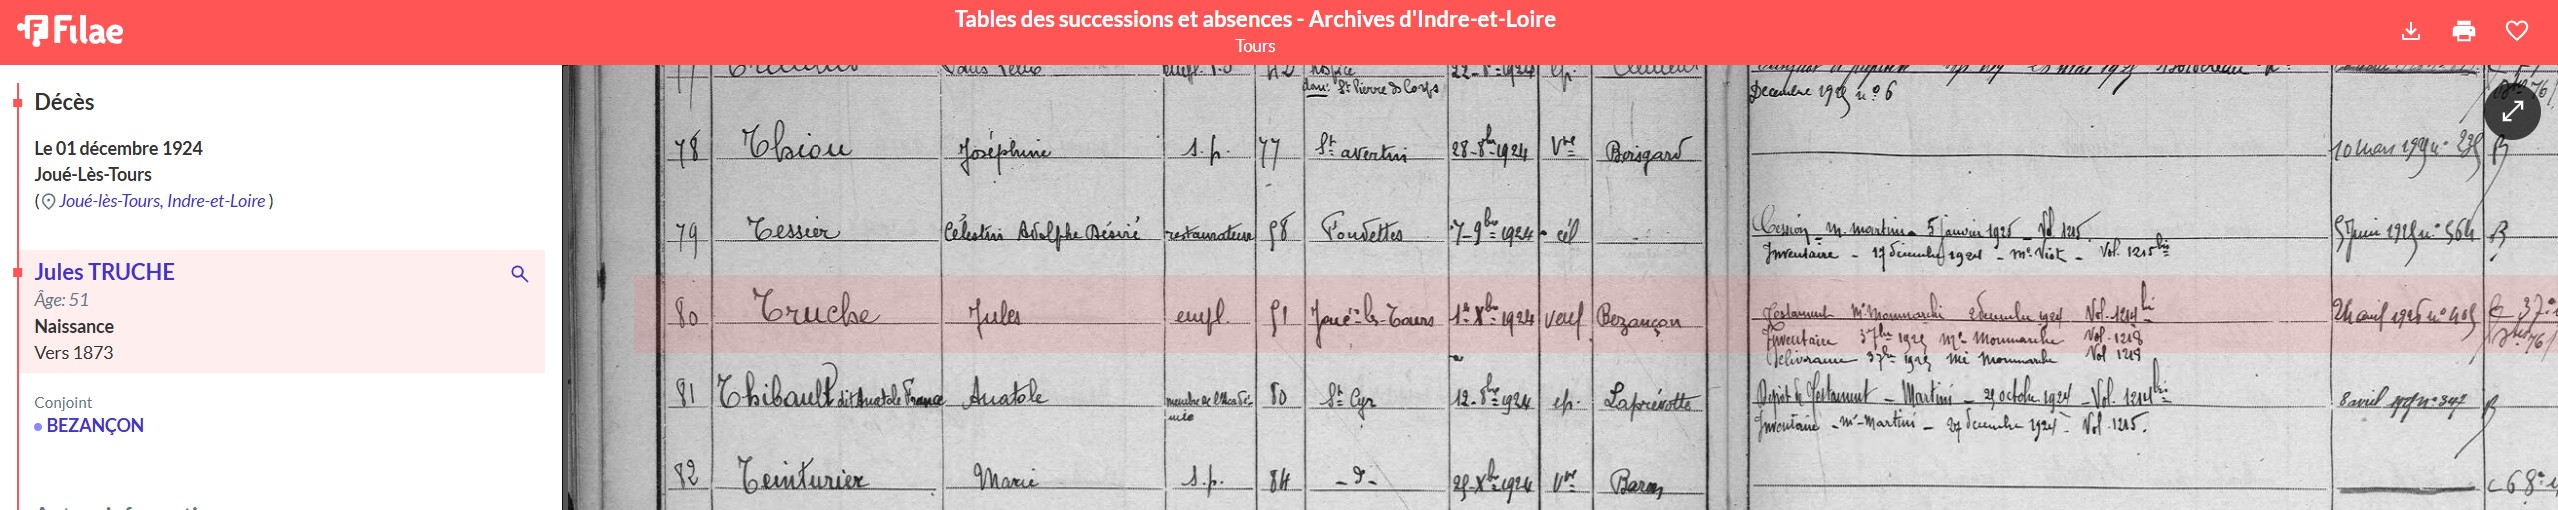 Filae
Tables des successions et absences - Archives d'Indre-et-Loire
Tours
Décès
Le 01 décembre 1924
Joué-Lès-Tours
(Joué-lès-Tours, Indre-et-Loire )
Jules TRUCHE
Âge: 51
Naissance
Vers 1873
Conjoint
BEZANÇON
hospice 22-8bre 1924 ep.
dom: St Pierre d Corps
Decembre 1925 no 6
78 Thiou Joséphine s.p. 77 St avertin 28-8bre 1924 Vve Berigard 10 mars
79 Tessier Célestin Adolphe Désiré restaurateur 58 Fondettes 7-9bre 1924 cél Cession - M. Martini - 5 janvier 1925 Vol. 1215 5 juin 1925 no 564 B
Inventaire - 17 décembre 1924 - Me Viot - Vol. 1215 bis
80 Truche Jules empl. 51 Joué-lès-Tours 1er Xbre 1924 veuf Bezançon Testament Me Monmarché 2 décembre 1924 Vol. 1214 bis
Inventaire 3 7bre 1925 Me Monmarché Vol. 1218
Délivrance 3 7bre 1925 Me Monmarché Vol 1218
81 Thibault dit Anatole France Anatole membre de l'Académie 80 St Cyr 12-8bre 1924 ep. Laprévotte Dépôt de Testament - Martini - 29 octobre 1924 - Vol. 1214 bis 8 avril 1925 no 347 B
Inventaire - Me Martini - 27 décembre 1924 - Vol. 1215.
82 Teinturier Marie s.p. 84 -d- 25-Xbre 1924 Vve Baron